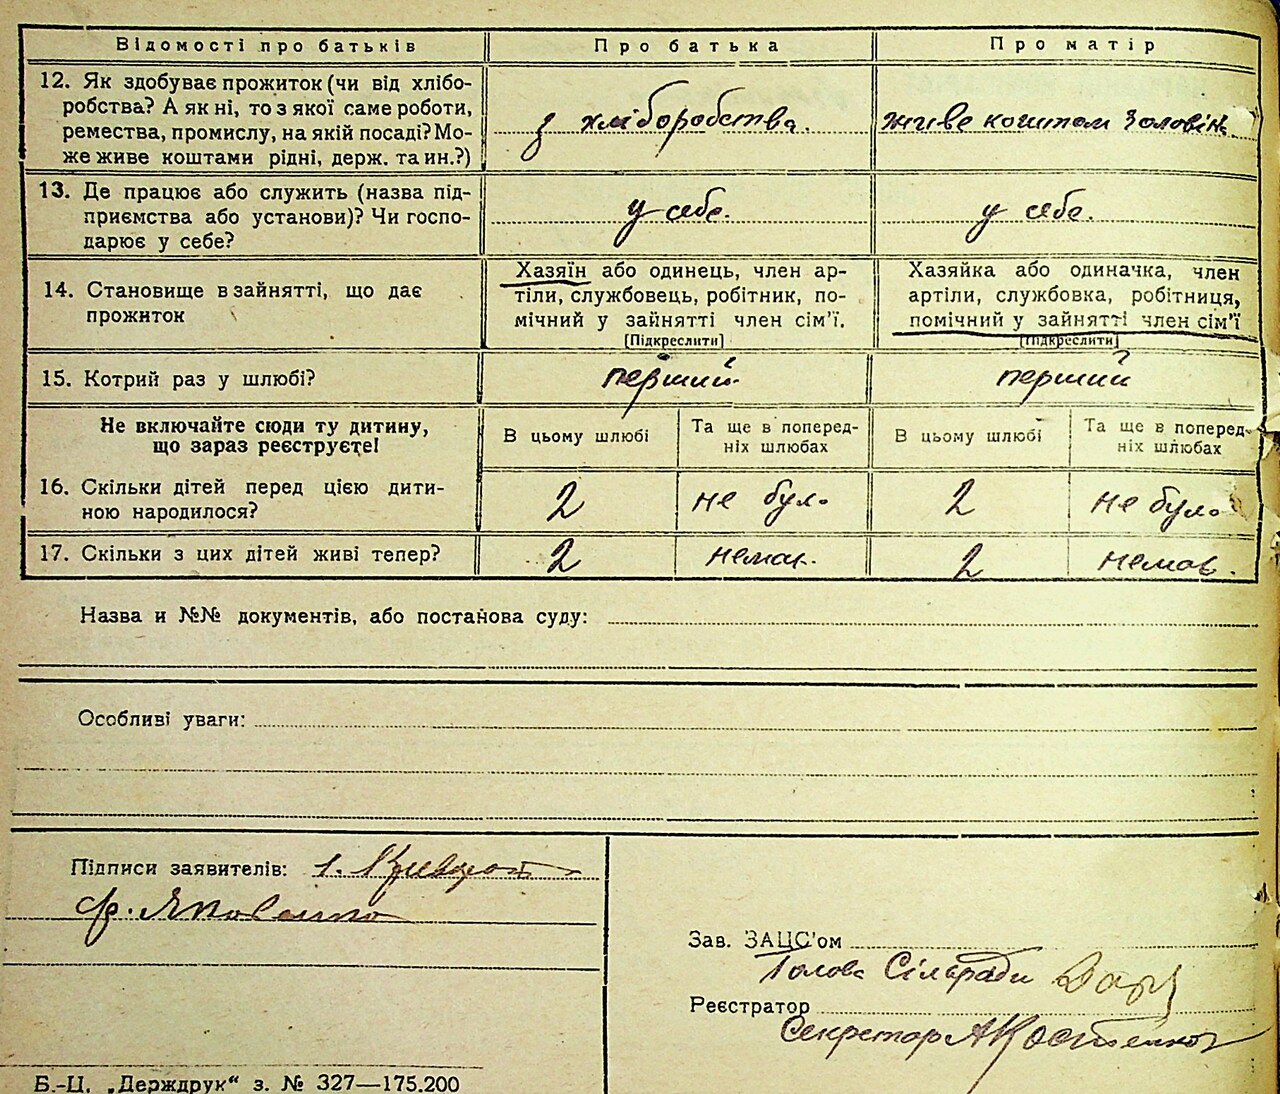 Відомості про батьків Про батька Про матір
12. Як здобуває прожиток (чи від хлібо-
робства? А як ні, то з якої саме роботи,
ремества, промислу, на якій посаді? Мо-
же живе коштами рідні, держ. та ин.?)
з хліборобства.
живе коштом
13. Де працює або служить (назва під-
приємства або установи)? Чи госпо-
дарює у себе?
у себе.
у себе.
14. Становище в зайнятті, що дає
прожиток
Хазяїн або одинець, член ар-
тіли, службовець, робітник, по-
мічний у зайнятті член сім'ї.
[Підкреслити]
Хазяйка або одиначка, член
артіли, службовка, робітниця,
помічний у зайнятті член сім'ї
[Підкреслити]
15. Котрий раз у шлюбі?
перший
перший
Не включайте сюди ту дитину,
що зараз реєструєте!
В цьому шлюбі
Та ще в поперед-
ніх шлюбах
В цьому шлюбі
Та ще в поперед-
ніх шлюбах
16. Скільки дітей перед цією дити-
ною народилося?
2
не було
2
не було
17. Скільки з цих дітей живі тепер?
2
немає.
2
немає.
Назва и №№ документів, або постанова суду:
Особливі уваги:
Підписи заявителів:
Зав. ЗАЦС'ом
Голова Сільради
Реєстратор
Секретар А Костенко
Б.-Ц. „Держдрук“ з. № 327—175.200